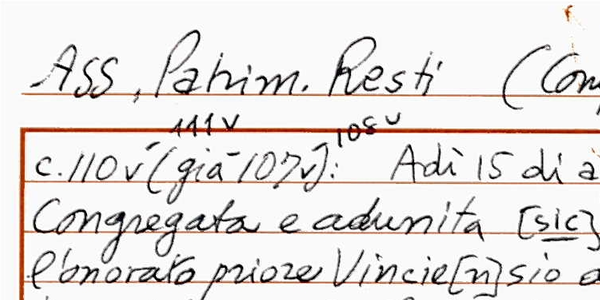 Ass, Patrim. Resti (Com
111v 108v
c. 110v (già 107v): Adì 15 di a
Congregata e adunita [sic]
l'onorato priore Vincie[n]sio a